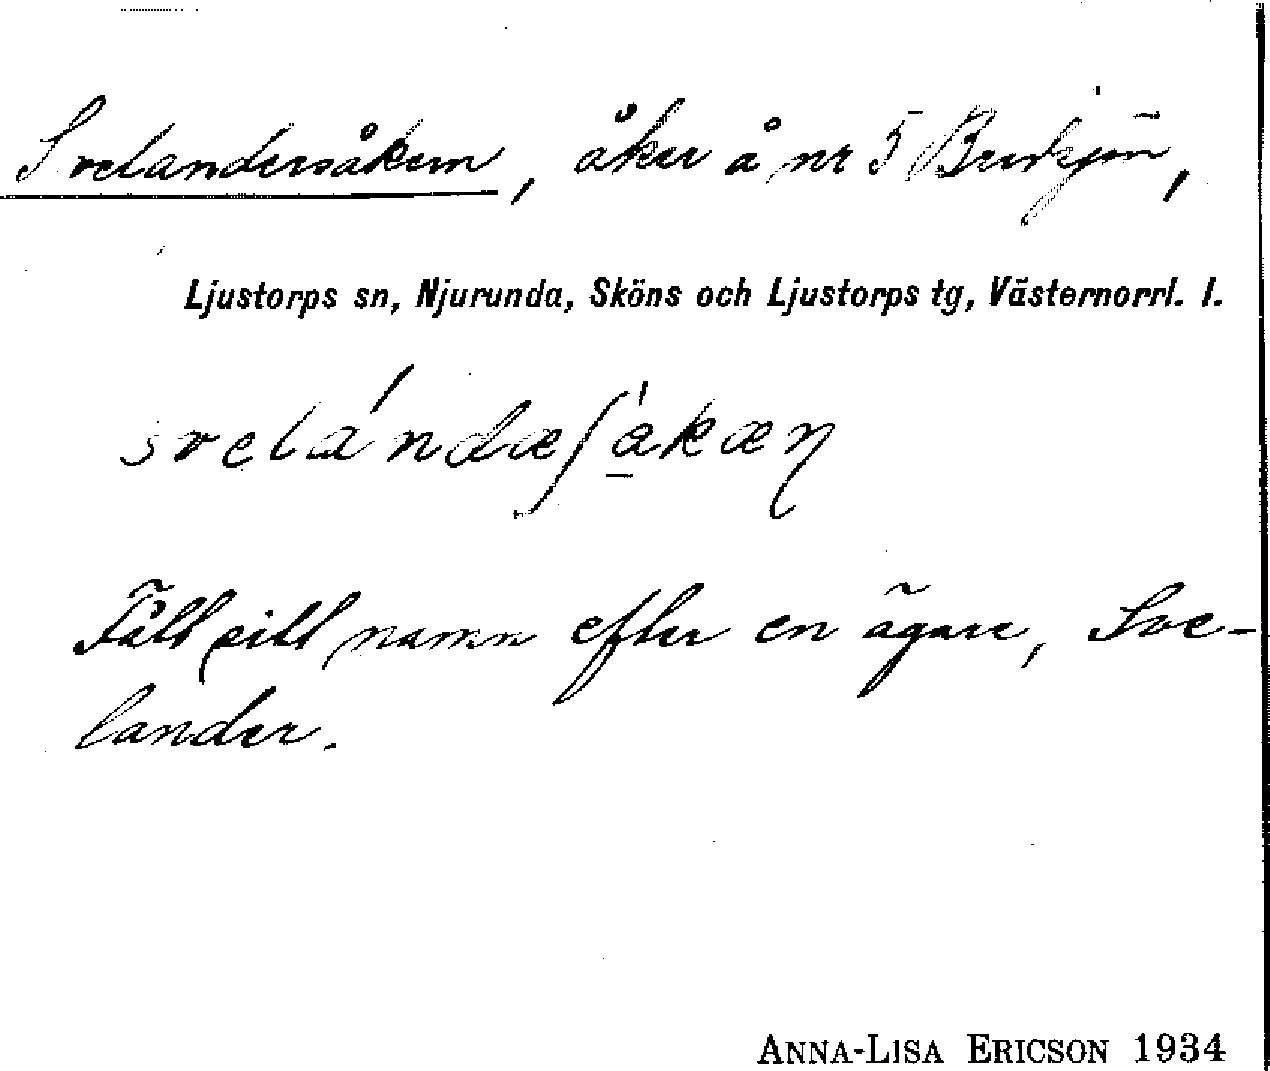 Svelandersåkern, åker å nr 5 Bredsjön,
Ljustorps sn, Njurunda, Sköns och Ljustorps tg, Västernorrl. l.
svelándæʃákæŋ
Fått sitt namn efter en ägare, Sve-
lander.
ANNA-LISA ERICSON 1934